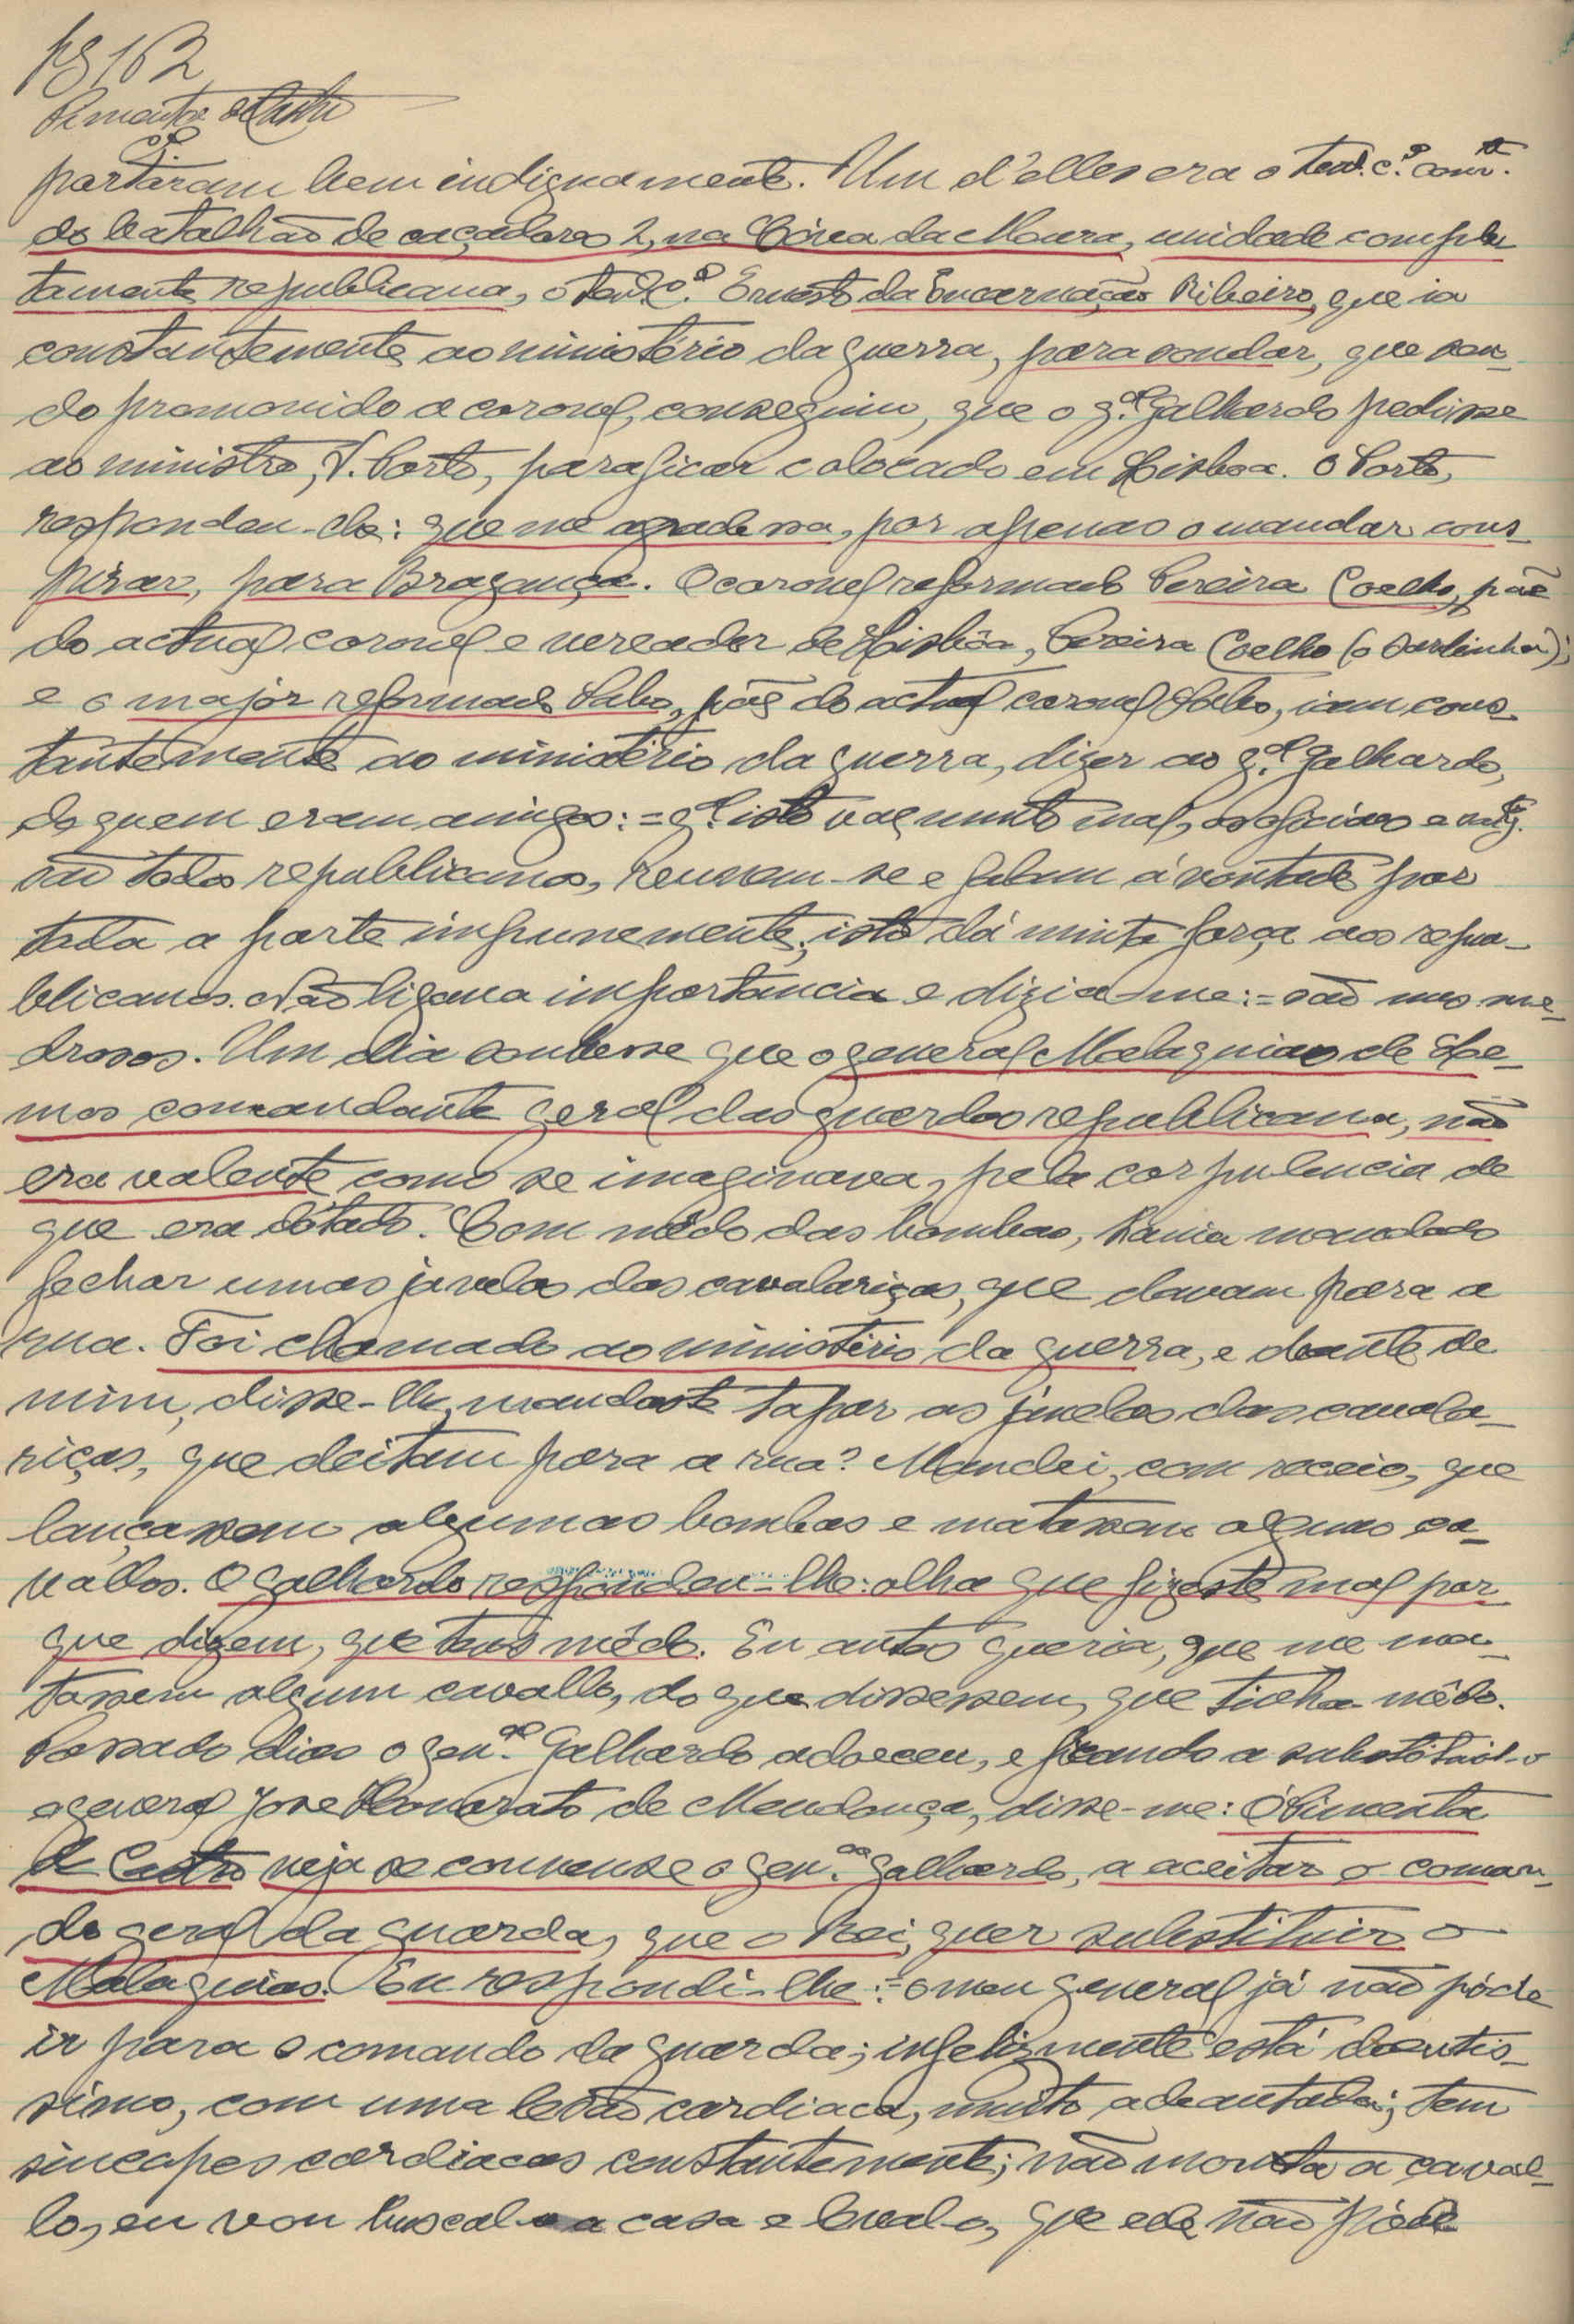 pg 162
Pimenta de Castro
portaram bem indignamente. Um d'elles era o ten. c.el com.te
do batalhão de caçadores 2, na Cóva da Moura, unidade comple
tamente republicana, o ten. c.el Ernesto da Encarnação Ribeiro, que ia
constantemente ao ministério da guerra, para sondar, que sen-
do promovido a coronel, conseguiu, que o g.al Galhardo pedisse
ao ministro, S. Porto, para ficar colocado em Lisboa. O Porto,
respondeu-lhe: que me agradessa, por apenas o mandar cons-
pirar, para Bragança. O coronel reformado Pereira Coelho, pãe
do actual coronel e vereador de Lisbôa, Pereira Coelho
e o major reformado Sabo, pãe do actual coronel Sabo, iam cons-
tantemente ao ministério da guerra, dizer ao g.al Galhardo,
de quem eram amigos: = g.al isto vae muito mal, os oficiáes e
são todos republicanos, Reunem-se e falam á vontade por
toda a parte impunemente; isto dá muita força aos repu-
blicanos. Não ligava importancia e dizia-me: = são uns me-
drosos. Um dia soubesse que o general Malaquias de Le-
mos comandante geral das guardas republicana, não
era valente como se imaginava, pela corpulencia de
que era dotado. Com mêdo das bombas, havia mandado
fechar umas janelas das cavalariças, que davam para a
rua. Foi chamado ao ministério da guerra, e deante de
mim, disse-lhe, mandaste tapar as janelas das cavala-
riças, que deitam para a rua? Mandei, com receio, que
lançassem algumas bombas e matassem alguns ca-
vallos. O Galhardo respondeu-lhe: olha que fizeste mal por-
que dizem, que tens mêdo. Eu antes queria, que me ma-
tassem algum cavallo, do que dissessem, que tinha mêdo.
Passado dias o gen.al Galhardo adoeceu, e ficando a substituil-o
o general José Honorato de Mendonça, disse-me: Ó Pimenta
de Castro veja se convense o gen.al Galhardo, a aceitar o coman-
do geral da guarda, que o Rei, quer substituir o
Malaquias. Eu respondi-lhe: = o meu general já não póde
ir para o comando da guarda; infelizmente está doentis-
simo, com uma lesão cardiaca, muito adeantada; tem
sincapes cardiacas constantemente; não monta a caval-
lo, eu vou buscal-o a casa e leval-o, que ele não póde